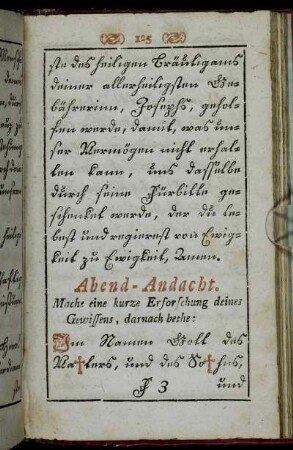 125
ste des heiligen Bräutigams
deiner allerheiligsten Ge-
bährerinn, Josephs, gehol-
fen werde, damit, was un-
ser Vermögen nicht erhal-
ten kann, uns dasselbe
durch seine Fürbitte ge-
schenket werde, der du le-
best und regierest von Ewig-
keit zu Ewigkeit, Amen.
Abend-Andacht.
Mache eine kurze Erforschung deines
Gewissens, darnach bethe:
Im Namen Gott des
Va†ters, und des So†hns,
F 3 und